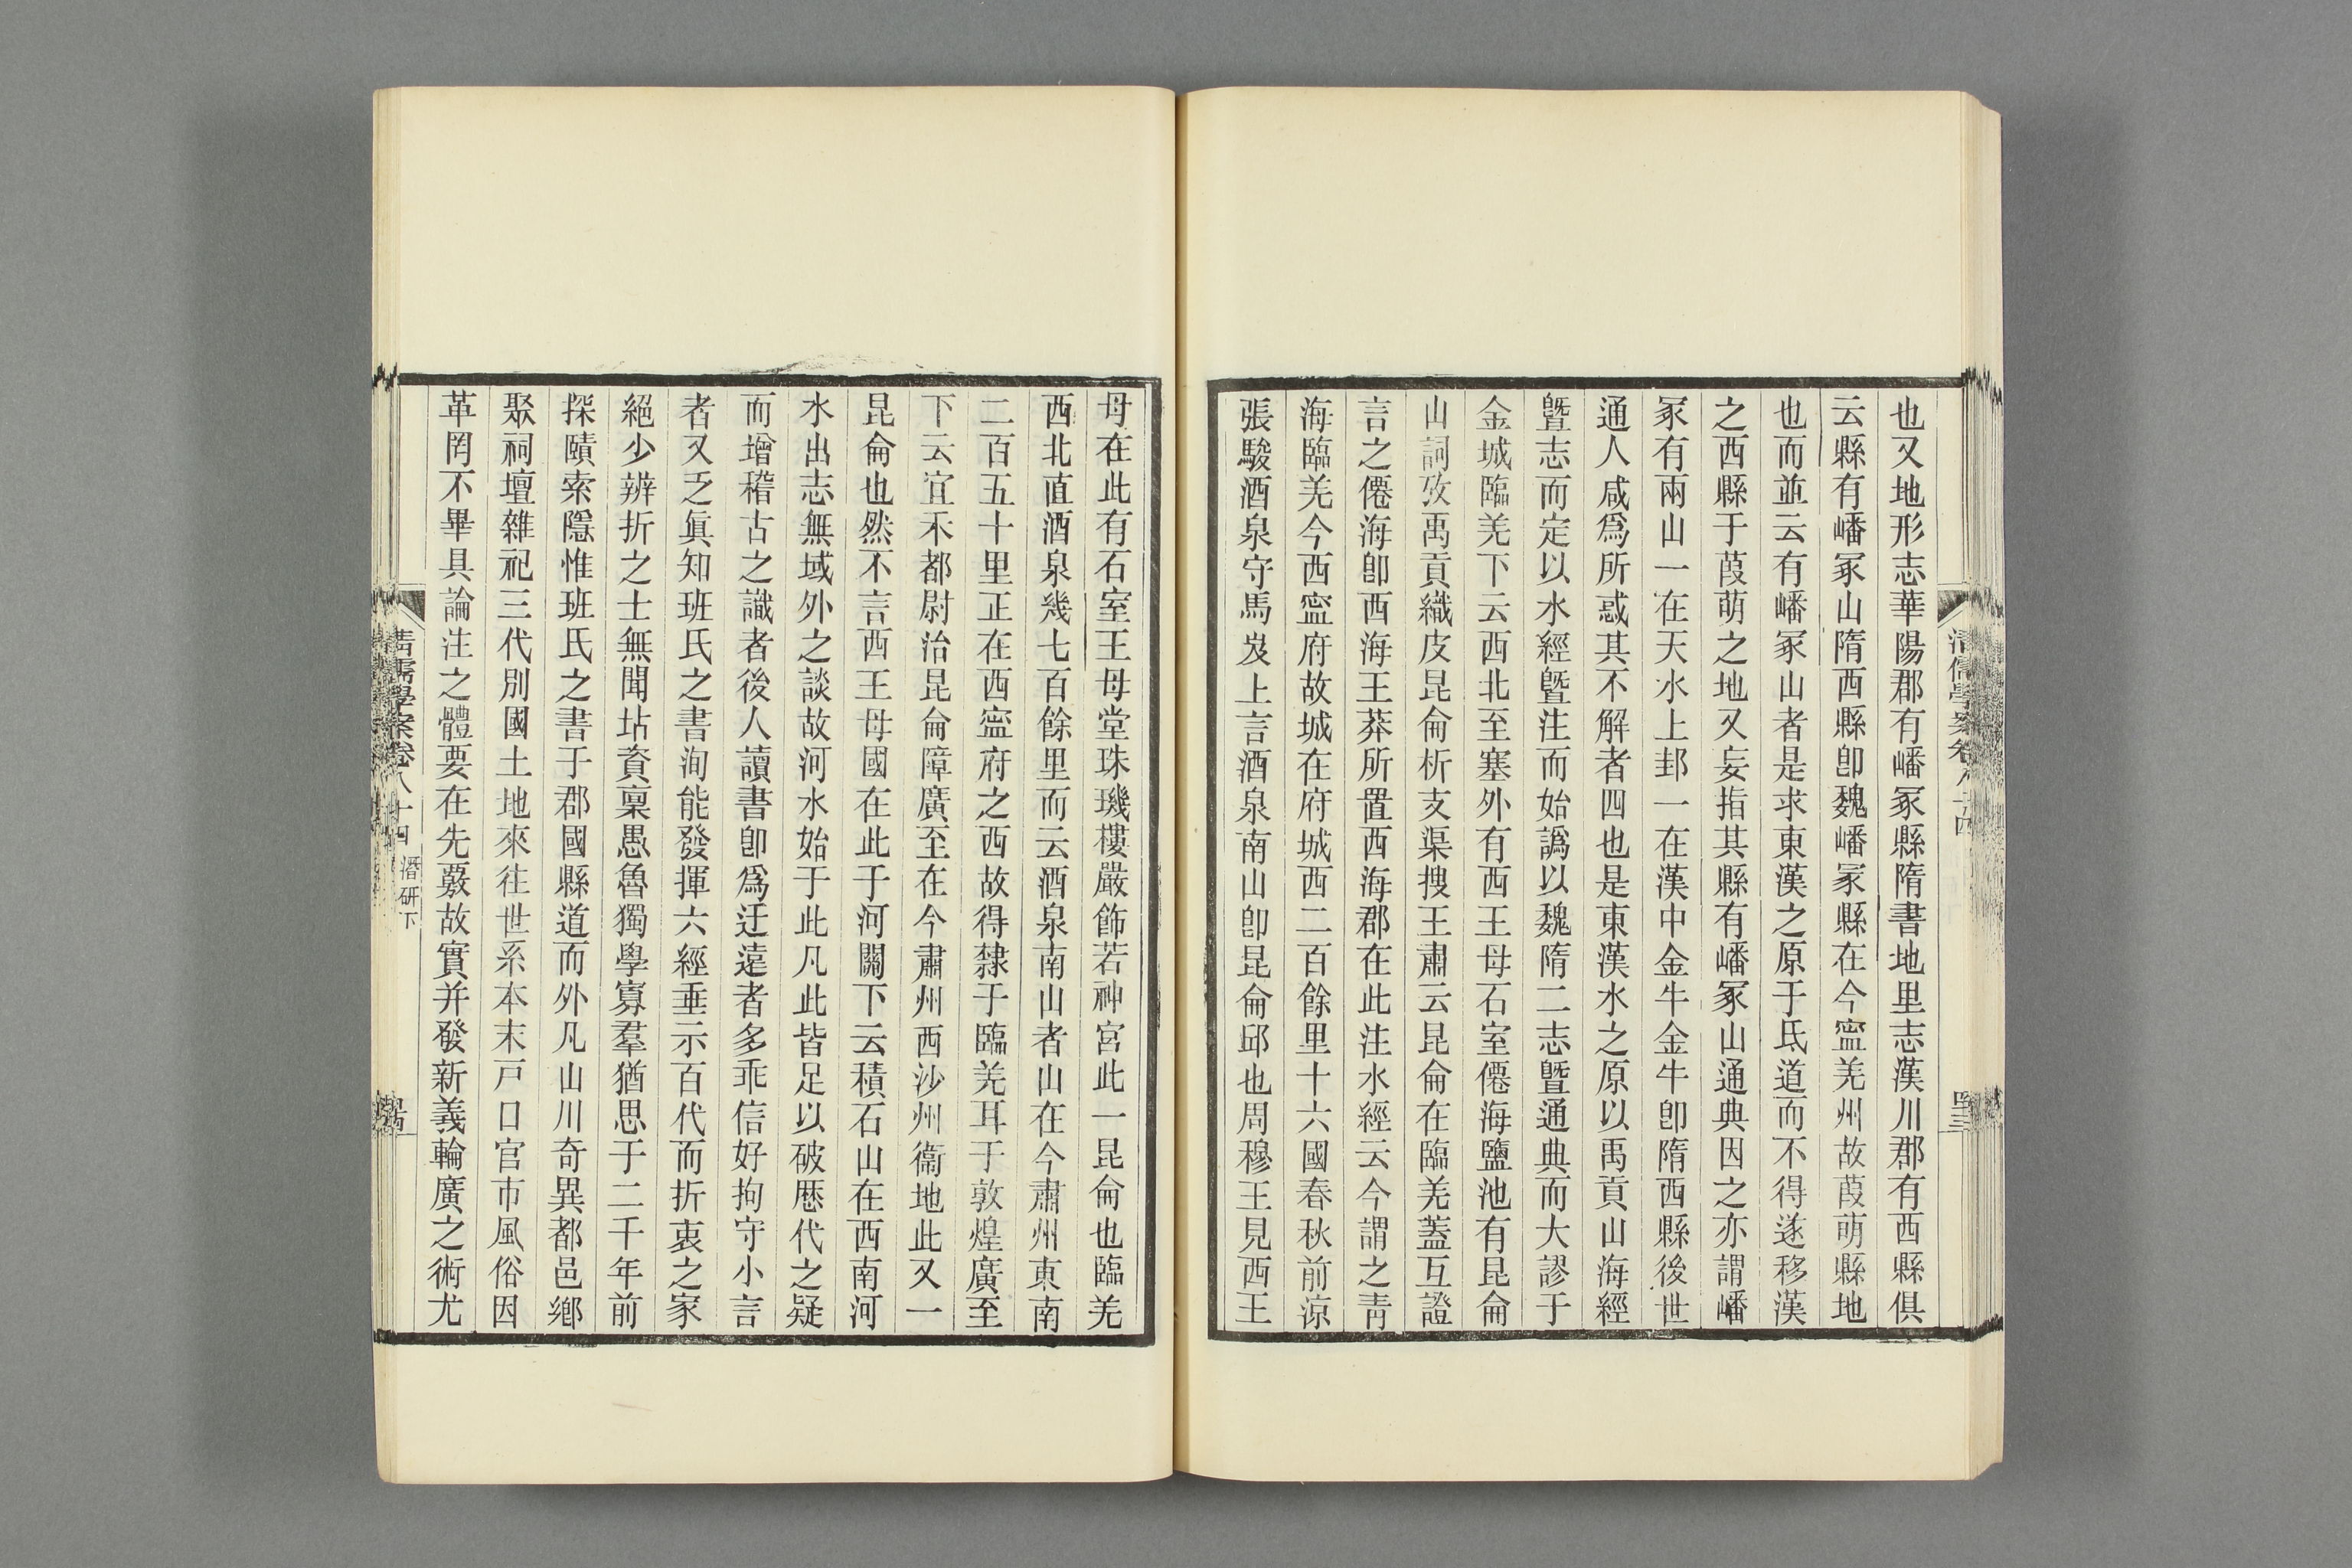 也又地形志華陽郡有嶓冢縣隋書地里志漢川郡有西縣俱
云縣有嶓冢山隋西縣卽魏嶓冢縣在今寍羌州故葭萌縣地
也而並云有嶓冢山者是求東漢之原于氐道而不得遂移漢
之西縣于葭萌之地又妄指其縣有嶓冢山通典因之亦謂嶓
冢有兩山一在天水上邽一在漢中金牛金牛卽隋西縣後世
通人咸爲所惑其不解者四也是東漢水之原以禹貢山海經
曁志而定以水經曁注而始譌以魏隋二志曁通典而大謬于
金城臨羌下云西北至塞外有西王母石室僊海鹽池有昆侖
山詞攷禹貢織皮昆侖析支渠搜王肅云昆侖在臨羌蓋互證
言之僊海卽西海王莽所置西海郡在此注水經云今謂之靑
海臨羌今西寍府故城在府城西二百餘里十六國春秋前涼
張駿酒泉守馬岌上言酒泉南山卽昆侖邱也周穆王見西王
母在此有石室王母堂珠璣樓嚴飾若神宮此一昆侖也臨羌
西北直酒泉幾七百餘里而云酒泉南山者山在今肅州東南
二百五十里正在西寍府之西故得隸于臨羌耳于敦煌廣至
下云宜禾都尉治昆侖障廣至在今肅州西沙州衞地此又一
昆侖也然不言西王母國在此于河關下云積石山在西南河
水出志無域外之談故河水始于此凡此皆足以破厯代之疑
而增稽古之識者後人讀書卽爲迂遠者多乖信好拘守小言
者又乏眞知班氏之書洵能發揮六經垂示百代而折衷之家
絕少辨折之士無聞坫資稟愚魯獨學寡羣猶思于二千年前
探賾索隱惟班氏之書于郡國縣道而外凡山川奇異都邑鄉
聚祠壇雜祀三代別國土地來往世系本末戸口官市風俗因
革罔不畢具論注之體要在先覈故實并發新義輪廣之術尤
清儒學案卷八十四 潛研下